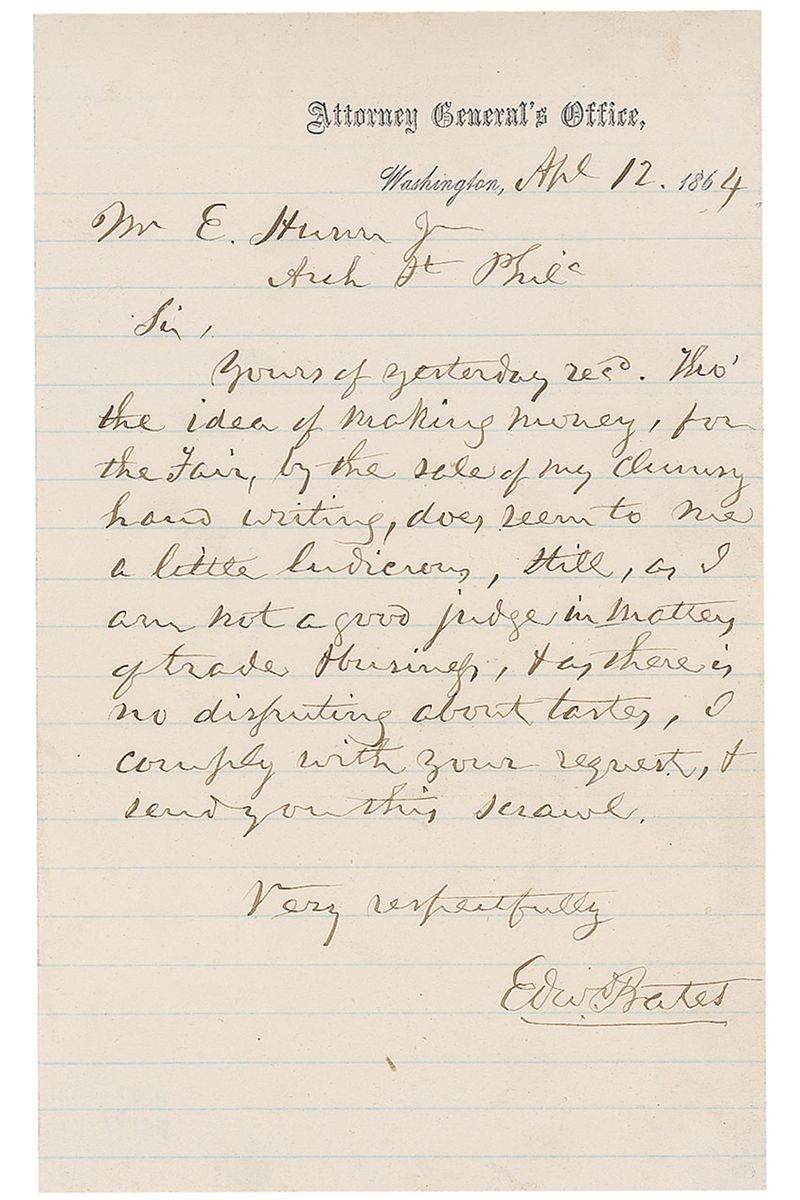 Attorney General's Office,
Washington, Apl 12. 1864
Mr E. Hunn Jr
Arch St Phila
Sir,
Yours of yesterday recd. Tho'
the idea of making money, for
the Fair, by the sale of my clumsy
hand writing, does seem to me
a little ludicrous, still, as I
am not a good judge in matters
of trade & business, & as there is
no disputing about tastes, I
comply with your request, &
send you this scrawl.
Very respectfully
Edw. Bates